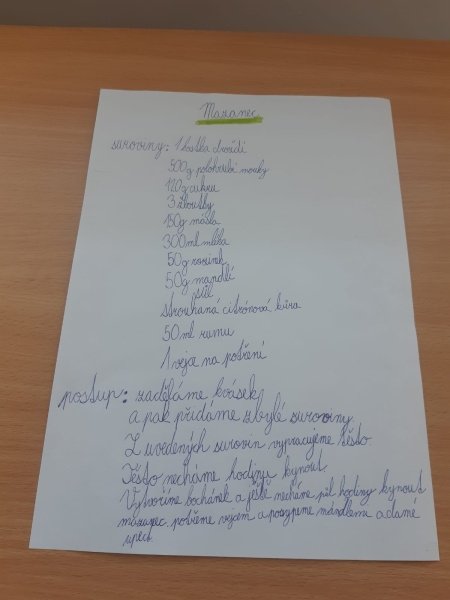 Mazanec
suroviny: 1 kostka droždí
500g polohrubé mouky
120g cukru
3 žloutky
150g másla
300ml mléka
50g rozinek
50g mandlí
sůl
strouhaná citrónová kůra
50ml rumu
1 vejce na potření
postup: zaděláme kvásek
a pak přidáme zbylé suroviny.
Z uvedených surovin vypracujeme těsto.
Těsto necháme hodinu kynout.
Vytvoříme bochánek a ještě necháme půl hodiny kynout
mazanec potřeme vejcem a posypeme mandlemi a dáme
upéct.